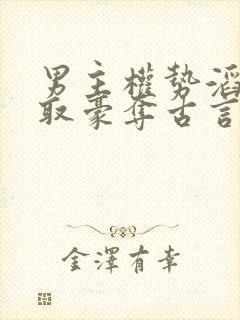 男主權勢滔
取豪奪古言
金澤有幸